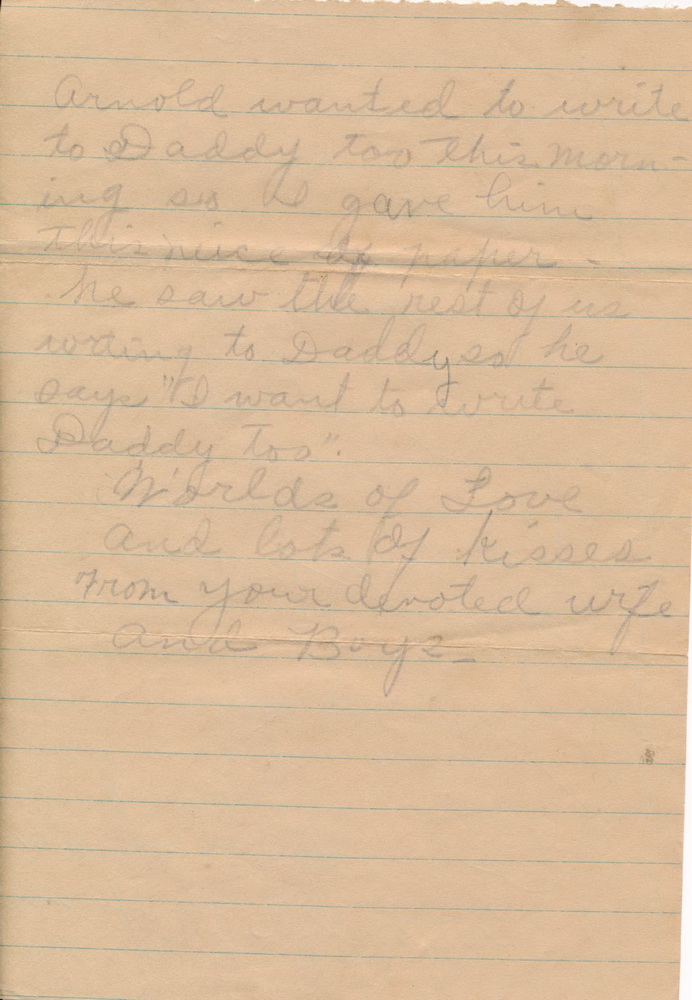 Arnold wanted to write
to Daddy too this morn-
ing so I gave him
this peice of paper -
he saw the rest of us
writing to Daddy so he
says "I want to write
Daddy too".
Worlds of Love
and lots of kisses
From your devoted wife
and Boys -